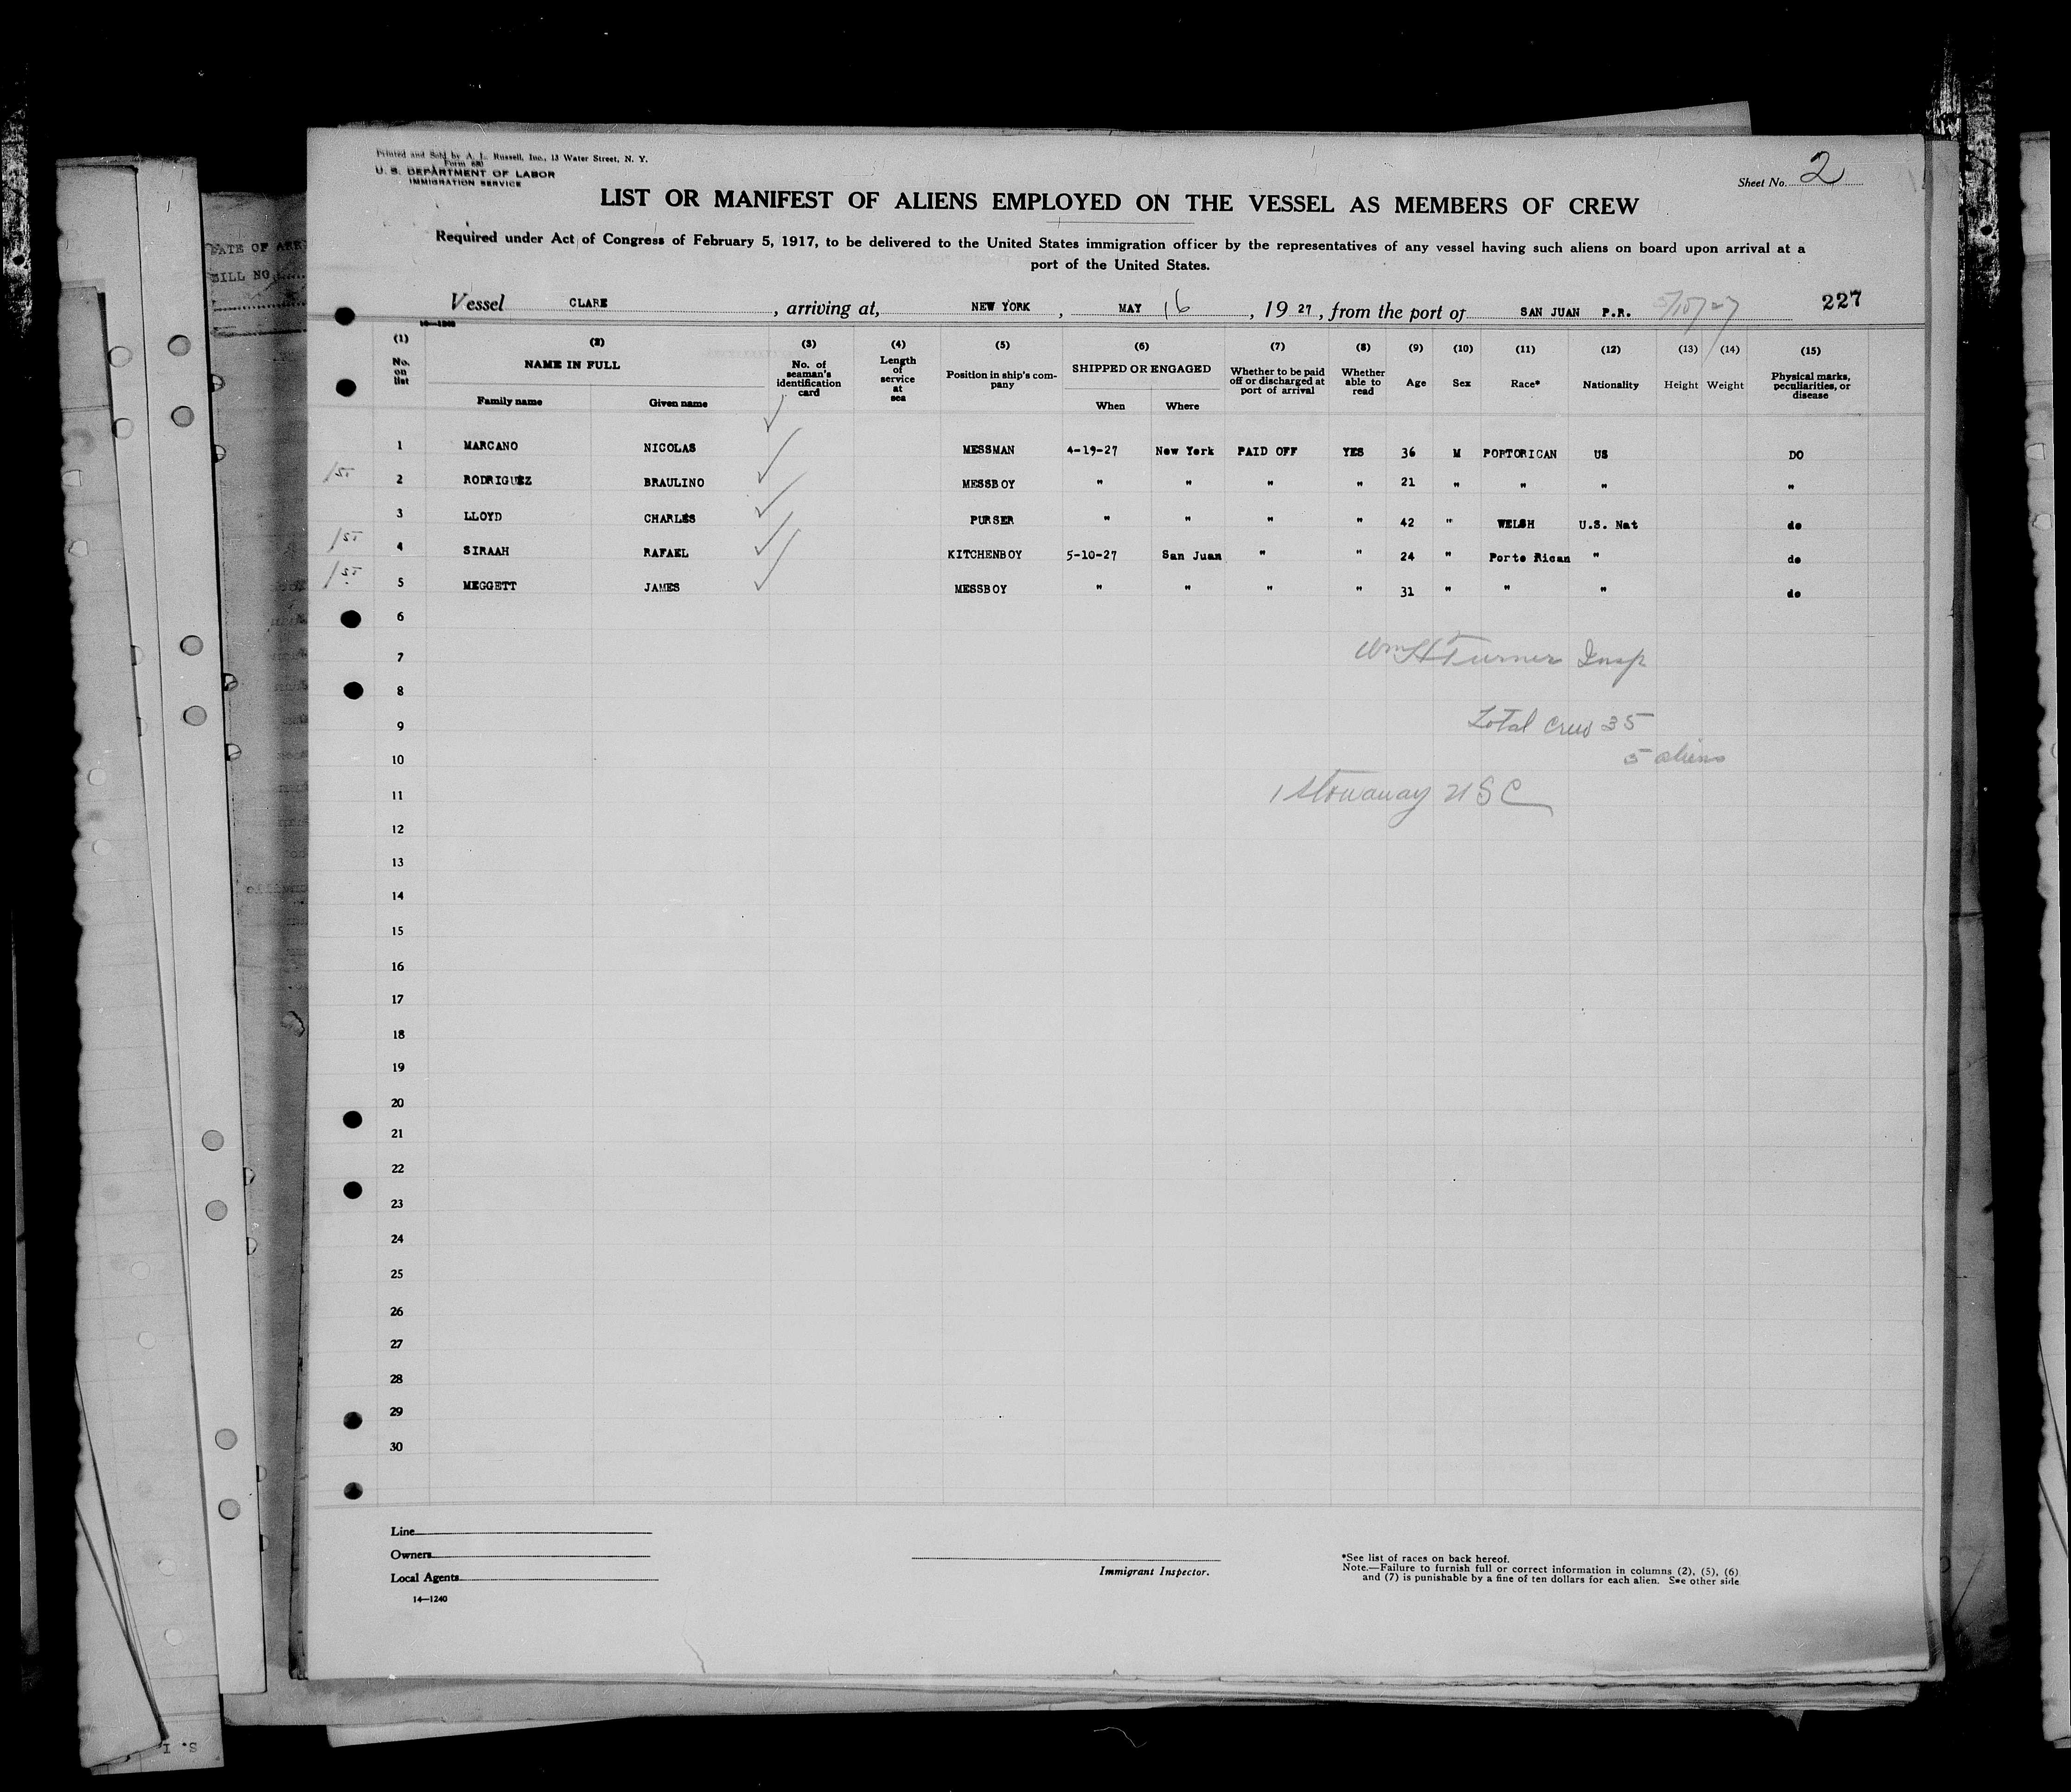 Printed and Sold by A. L. Russell, Inc., 13 Water Street, N. Y.
Form 680
U. S. DEPARTMENT OF LABOR
IMMIGRATION SERVICE
Sheet No. 2
LIST OR MANIFEST OF ALIENS EMPLOYED ON THE VESSEL AS MEMBERS OF CREW
Required under Act of Congress of February 5, 1917, to be delivered to the United States immigration officer by the representatives of any vessel having such aliens on board upon arrival at a
port of the United States.
Vessel CLARE, arriving at, NEW YORK, MAY 16, 1927, from the port of SAN JUAN P.R. 5/10/27 227
(1) No. on list
(2) NAME IN FULL Family name Given name
(3) No. of seaman's identification card
(4) Length of service at sea
(5) Position in ship's company
(6) SHIPPED OR ENGAGED When Where
(7) Whether to be paid off or discharged at port of arrival
(8) Whether able to read
(9) Age
(10) Sex
(11) Race*
(12) Nationality
(13) Height
(14) Weight
(15) Physical marks, peculiarities, or disease
1 MARCANO NICOLAS MESSMAN 4-19-27 New York PAID OFF YES 36 M PORTORICAN US DO
1st 2 RODRIGUEZ BRAULINO MESSBOY " " " " 21 " " " "
3 LLOYD CHARLES PURSER " " " " 42 " WELSH U.S. Nat do
1st 4 SIRAAH RAFAEL KITCHENBOY 5-10-27 San Juan " " 24 " Porto Rican " do
1st 5 MEGGETT JAMES MESSBOY " " " " 31 " " " do
6
7 Wm H Turner Insp
8
9 Total Crew 35
10 5 aliens
11 1 Stowaway USC
12
13
14
15
16
17
18
19
20
21
22
23
24
25
26
27
28
29
30
Line
Owners
Local Agents
14—1240
Immigrant Inspector.
*See list of races on back hereof.
Note.—Failure to furnish full or correct information in columns (2), (5), (6)
and (7) is punishable by a fine of ten dollars for each alien. See other side